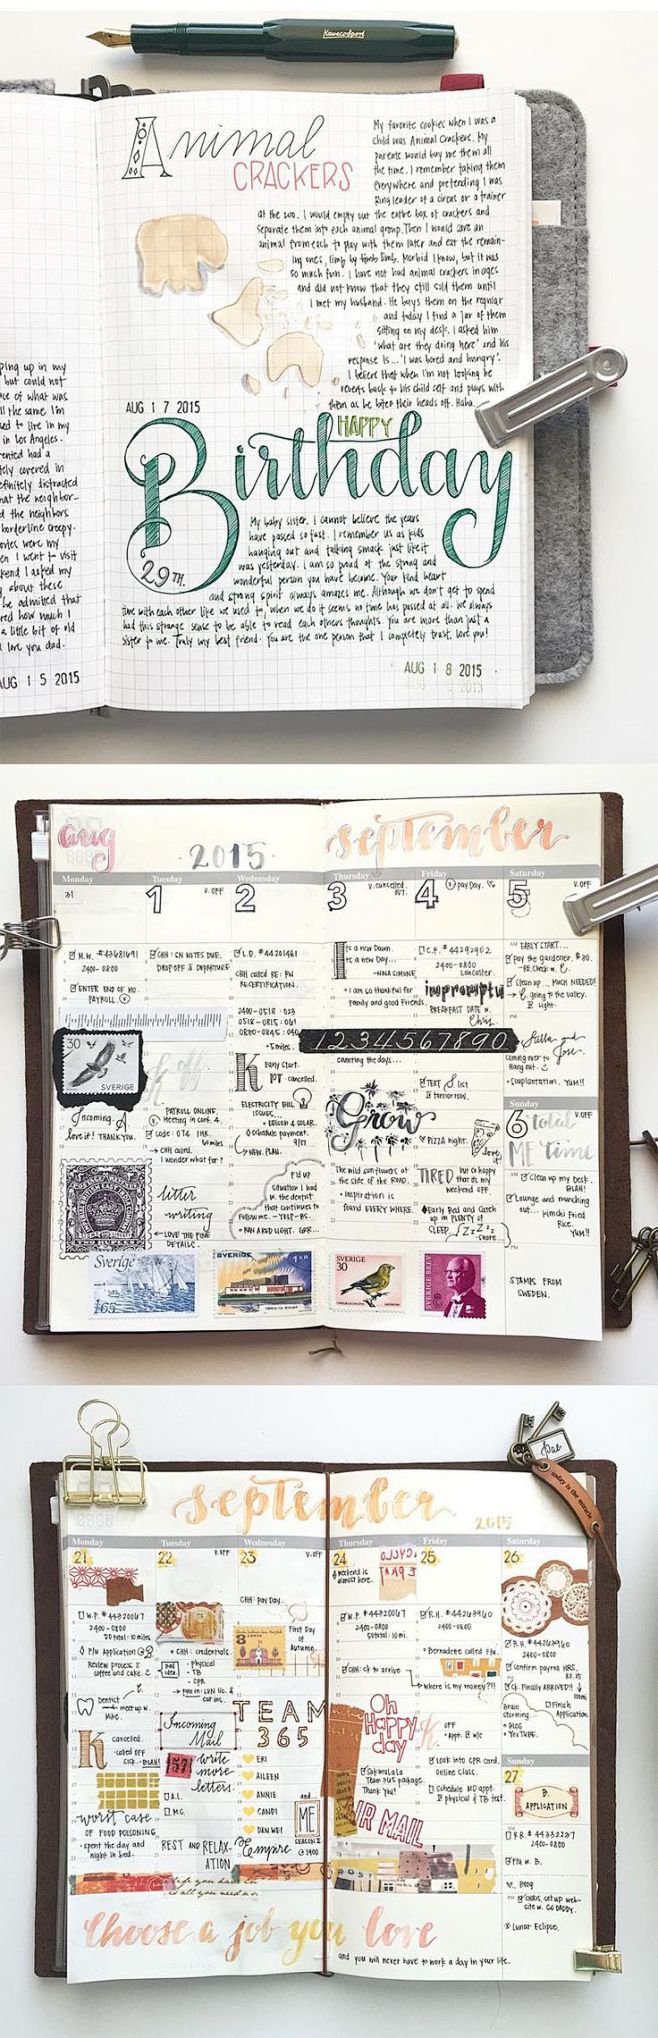 Kawecosport
Animal
CRACKERS
My favorite cookies when I was a
child was Animal Crackers. My
parents would buy me them all
the time. I remember taking them
everywhere and pretending I was
Ring leader of a circus or a trainer
at the zoo. I would empty out the entire box of crackers and
separate them into each animal group. Then I would save an
animal from each to play with them later and eat the remain-
ing ones, limb by limb. Morbid I know, but it was
so much fun. I have not had animal crackers in ages
and did not know that they still sold them until
I met my husband. He buys them on the regular
and today I find a jar of them
sitting on my desk. I asked him
'what are they doing here' and his
response is... 'I was bored and hungry'.
I believe that when I'm not looking he
reverts back to his child self and plays with
them as he bites their heads off. Haha.
AUG 17 2015
HAPPY
Birthday
29TH.
My baby sister. I cannot believe the years
have passed so fast. I remember us as kids
hanging out and talking smack just like it
was yesterday. I am so proud of the strong and
wonderful person you have become. Your kind heart
and strong spirit always amazes me. Although we don't get to spend
time with each other like we used to, when we do it seems no time has passed at all. We always
had this strange sense to be able to read each others thoughts. You are more than just a
sister to me. Truly my best friend. You are the one person that I completely trust. Love you!
AUG 18 2015
ping up in my
but could not
of what was
the same. I'm
to live in my
in Los Angeles.
had a
covered in
definitely distracted
the neighbor-
the neighbors
borderline creepy.
were my
I went to visit
I asked my
about these
be admitted that
how much I
a little bit of old
love you dad.
AUG 15 2015
aug
2015
september
Monday
Tuesday
Wednesday
Thursday
Friday
Saturday
31
1
V. OFF
2
3
V. cancelled.
4
pay Day.
5
V. OFF
H.W. #43681691
2400-0800
ENTER END OF MO.
PAYROLL.
CHH: CN NOTES DUE.
DROP OFF
DEPARTURE
L.D. #44201481
CHH called RE: RN
RECERTIFICATION.
2400-0518
0518-0815
5 miles.
Its a new Dawn.
its a new Day...
-NINA SIMONE
I am so thankful for
family and good friends.
C.F. #44292902
2400-0800
Lancaster.
impromptu
BREAKFAST DATE w.
Chris.
AM EARLY START...
Pay the gardener, $30.
Clean up... MUCH NEEDED!
going to the valley.
1234567890
counting the days...
30
SVERIGE
Incoming
love it! THANK YOU.
PAYROLL ONLINE.
Meeting in conf. 4.
I wonder what for?
K
Early start.
PT cancelled.
ELECTRICITY BILL
ISSUES...
EDISON & SOLAR.
schedule payment.
NEW. PLAN.
Grow
TEXT S list
tomorrow.
PIZZA night.
love it!
Stella and
Jose
coming over to
Hang out.
Couplantation. YUM!!
Sunday
6
total
V. OFF
ME time
Clean up my desk.
BLAH!
Lounge and munching
out... kimchi Fried
Rice.
YUM!!
letter
writing
LOVE THE FINE
DETAILS.
TWO RUPEES
F'd up
situation I had
w. the dentist
that continues to
follow me. -YELP-BS.
RAN A RED LIGHT. GRR...
The wild sunflowers at
the side of the ROAD.
Inspiration is
found EVERY WHERE.
TIRED
but so happy
that its my
weekend off.
Early Bed and Catch
up on PLENTY of
SLEEP
Snore...
Sverige
165
SVERIGE
1 KR
SVERIGE
30
SVERIGE BREV
STAMPS FROM
SWEDEN.
september
2015
today is the miracle
Monday
Tuesday
Wednesday
Thursday
Friday
Saturday
21
22
V. OFF
23
V. OFF
24
weekend is
almost here.
25
26
CHH: pay Day.
W.P. #44320067
2400-0800
50 total: 10 miles
P/U Application
Review process &
coffee and cake.
Dentist
meet up w.
Mike.
K
cancelled.
called off
sick. -BLAH!
worst case
OF FOOD POISONING
spent the day and
night in bed.
CHH: credentials.
Physical
TB
CPR
car ins.
Incoming
Mail
write
more
letters.
A.L.
M.G.
REST AND RELAX-
ATION
First Day
of
Autumn.
TEAM
365
ERI
AILEEN
ANNIE
CANDI
DAN WEI
and
ME
Empire
@ 1900
W.P. #44320067
2400-0800
50 total: 10 mi.
CHH: ck to arrive
Oh
Happy
day
Sakuralala
Team 365 package.
Thank you!
AIR MAIL
R.H. #44263960
2400-0800
Bernadette called Flu.
where is my money?!!
OFF
Appt. w/c
Look into CPR card.
Online class.
Schedule MD appt.
physical & TB test.
R.H. #44263960
2400-0800
Confirm payroll HRS.
80.75
Ck. Finally ARRIVED!!
Brain
storming
BLOG
YOUTUBE.
Finish
Application
Sunday
27
B.
APPLICATION
R.R. #44332237
1700-0800
Flu w. B.
CHRIS, set up web-
site w. GO DADDY.
Lunar Eclipse.
Choose a job you love
and you will never have to work a day in your life.